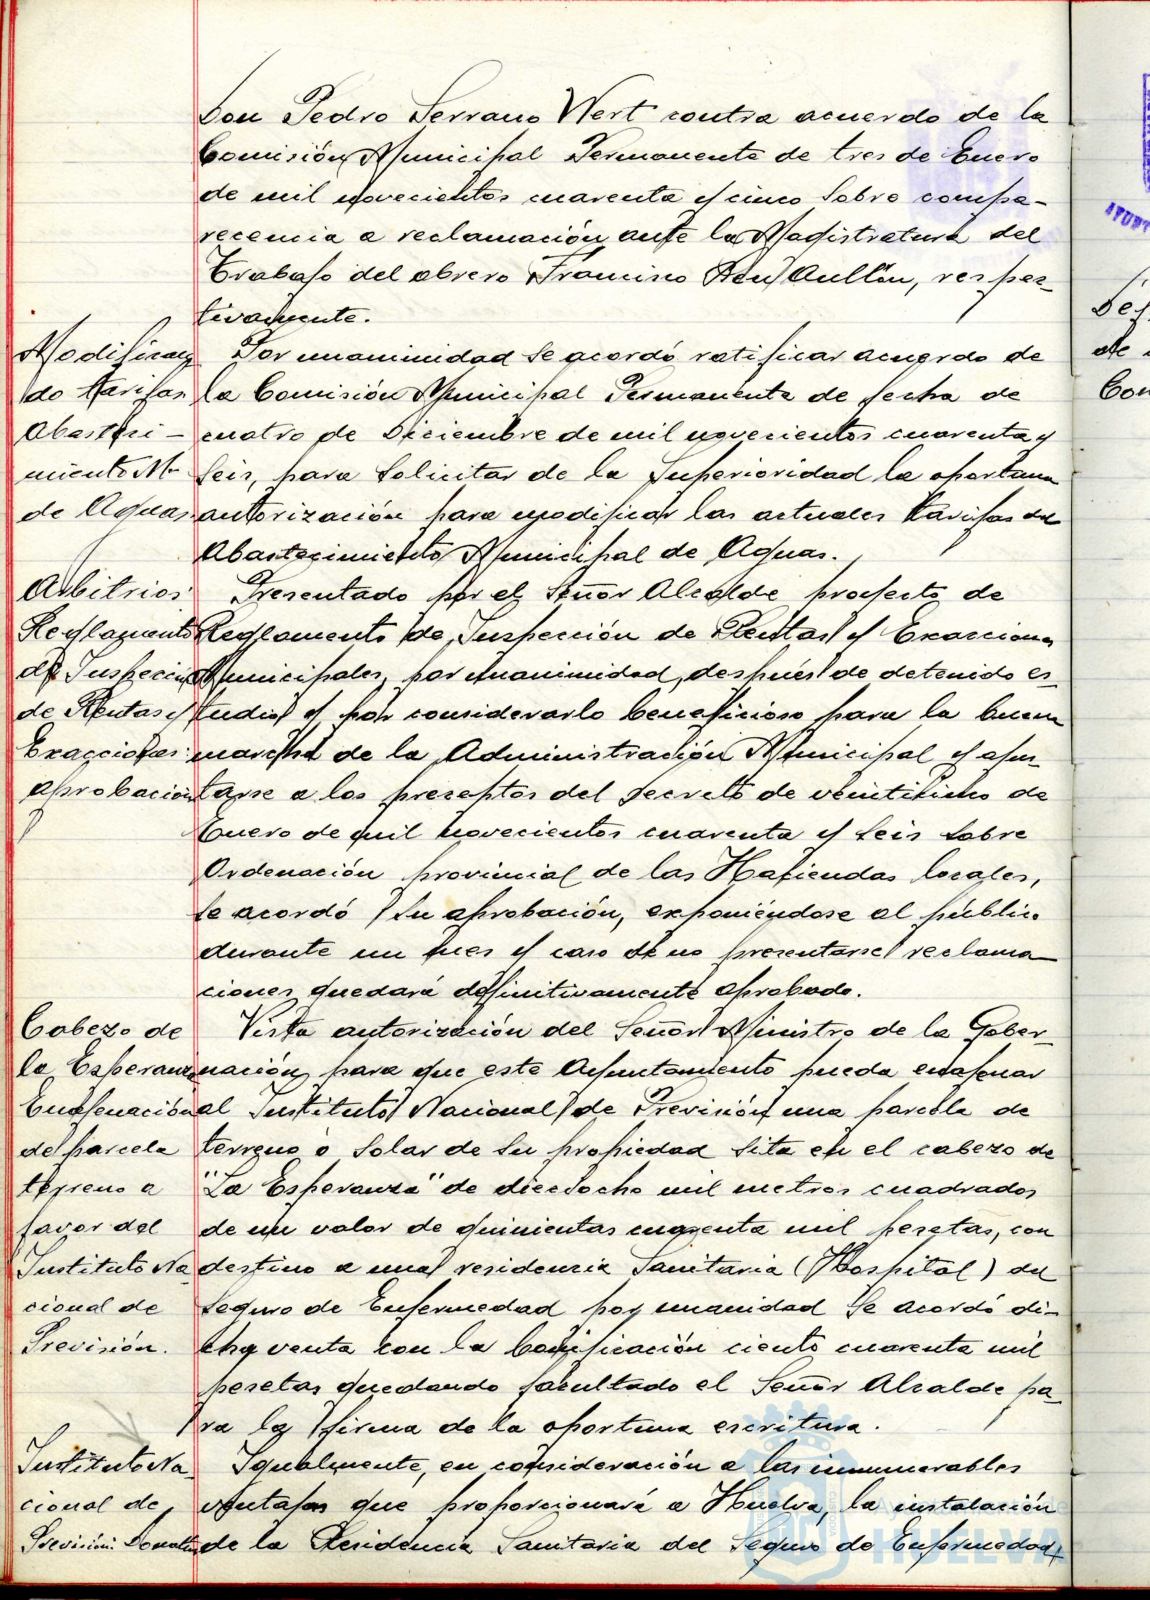 Don Pedro Serrano Wert contra acuerdo de la
Comisión Municipal Permanente de tres de Enero
de mil novecientos cuarenta y cinco sobre compa-
recencia a reclamación ante la Magistratura del
Trabajo del obrero Francisco Aullón, respec-
tivamente.
Modifican
do tarifas
Abasteci-
miento M.
de Aguas
Por unaminidad se acordó ratificar acuerdo de
la Comisión Municipal Permanente de fecha de
cuatro de Diciembre de mil novecientos cuarenta y
seis, para solicitar de la Superioridad la oportuna
autorización para modificar las actuales tarifas del
Abastecimiento Municipal de Aguas.
Arbitrios
Reglamento
de Inspección
de Rentas y
Exacciones
aprobación
Presentado por el Señor Alcalde proyecto de
Reglamento de Inspección de Rentas y Exacciones
Municipales, por unanimidad, después de detenido es-
tudio y por considerarlo beneficioso para la buena
marcha de la Administración Municipal y ajus-
tarse a los preceptos del Decreto de veinticinco de
Enero de mil novecientos cuarenta y seis sobre
Ordenación provincial de las Haciendas locales,
se acordó su aprobación, exponiéndose al público
durante un mes y caso de no presentarse reclama-
ciones quedará definitivamente aprobado.
Cabezo de
la Esperanza
Enajenación
de parcela
terreno a
favor del
Instituto Na
cional de
Previsión.
Vista autorización del Señor Ministro de la Gober-
nación, para que este Ayuntamiento pueda enajenar
al Instituto Nacional de Previsión una parcela de
terreno o solar de su propiedad sita en el cabezo de
"La Esperanza" de dieciocho mil metros cuadrados
de un valor de quinientas cuarenta mil pesetas, con
destino a una residencia Sanitaria (Hospital) del
Seguro de Enfermedad por unanidad se acordó di-
cha venta con la bonificación ciento cuarenta mil
pesetas quedando facultado el Señor Alcalde pa-
ra la firma de la oportuna escritura.
Instituto Na
cional de
Previsión:
Igualmente, en consideración a las innumerables
ventajas que proporcionará a Huelva, la instalación
de la Residencia Sanitaria del Seguro de Enfermedad,
De
de
Com
HUELVA